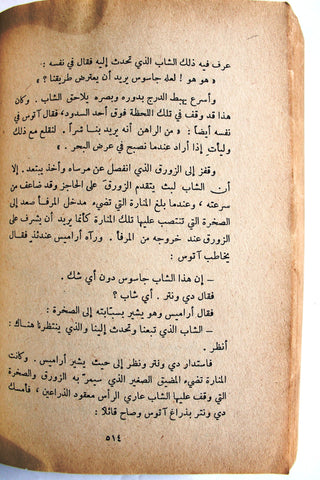 عرف فيه ذلك الشاب الذي تحدث إليه فقال في نفسه :
« هو هو ! لعله جاسوس يريد أن يعترض طريقنا ؟ »
وأسرع يهبط الدرج بدوره وبصره يلاحق الشاب . وكان
هذا قد وقف في تلك اللحظة فوق أحد السدود، فقال آتوس في
نفسه أيضاً : « من الراهن أنه يريد بنا شراً . لنقلع مع ذلك
وليأت إذا أراد عندما نصبح في عرض البحر . »
وقفز إلى الزورق الذي انفصل عن مرساه وأخذ يبتعد. إلا
أن الشاب لبث يتقدم الزورق على الحاجز وقد ضاعف من
سرعته ، وعندما بلغ المنارة التي تضيء مدخل المرفأ صعد إلى
الصخرة التي تنتصب عليها تلك المنارة كأنما يريد أن يشرف على
الزورق عند خروجه من المرفأ . ورآه أراميس عندئذ فقال
يخاطب آتوس :
– إن هذا الشاب جاسوس دون أي شك .
فقال دي ونتر . أي شاب ؟
فقال أراميس وهو يشير بسبّابته إلى الصخرة :
– الشاب الذي تبعنا وتحدث إلينا والذي ينتظرنا هناك :
أنظر .
فاستدار دي ونتر ونظر إلى حيث يشير أراميس . وكانت
المنارة تضيء المضيق الصغير الذي سيمرّ به الزورق والصخرة
التي وقف عليها الشاب عاري الرأس معقود الذراعين ، فأمسك
دي ونتر بذراع آتوس وصاح قائلاً :
٥١٤